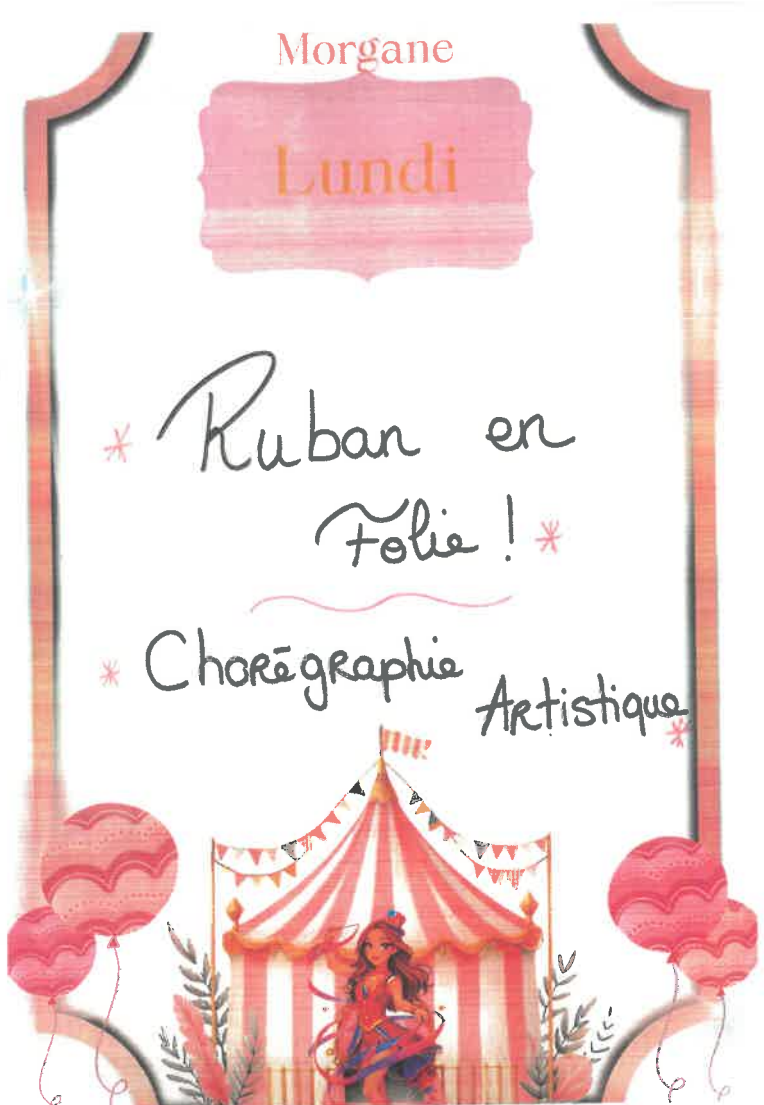 Morgane
Lundi
Ruban en
Folie !
Chorégraphie
Artistique